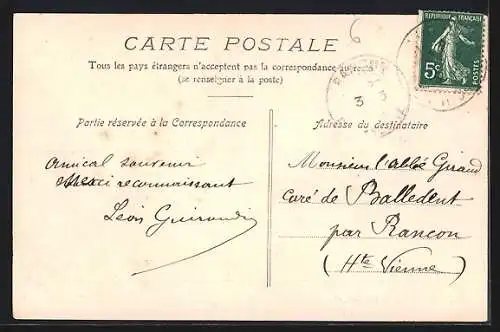 CARTE POSTALE
Tous les pays étrangers n'acceptent pas la correspondance au recto
(se renseigner à la poste)
6
RÉPUBLIQUE FRANÇAISE
5c
POSTES
3
3
Partie réservée à la Correspondance
Adresse du destinataire
Amical souvenir
Merci reconnaissant
Léon
Monsieur l'abbé Giraud
Curé de Balledent
par Rancon
(Hte Vienne)